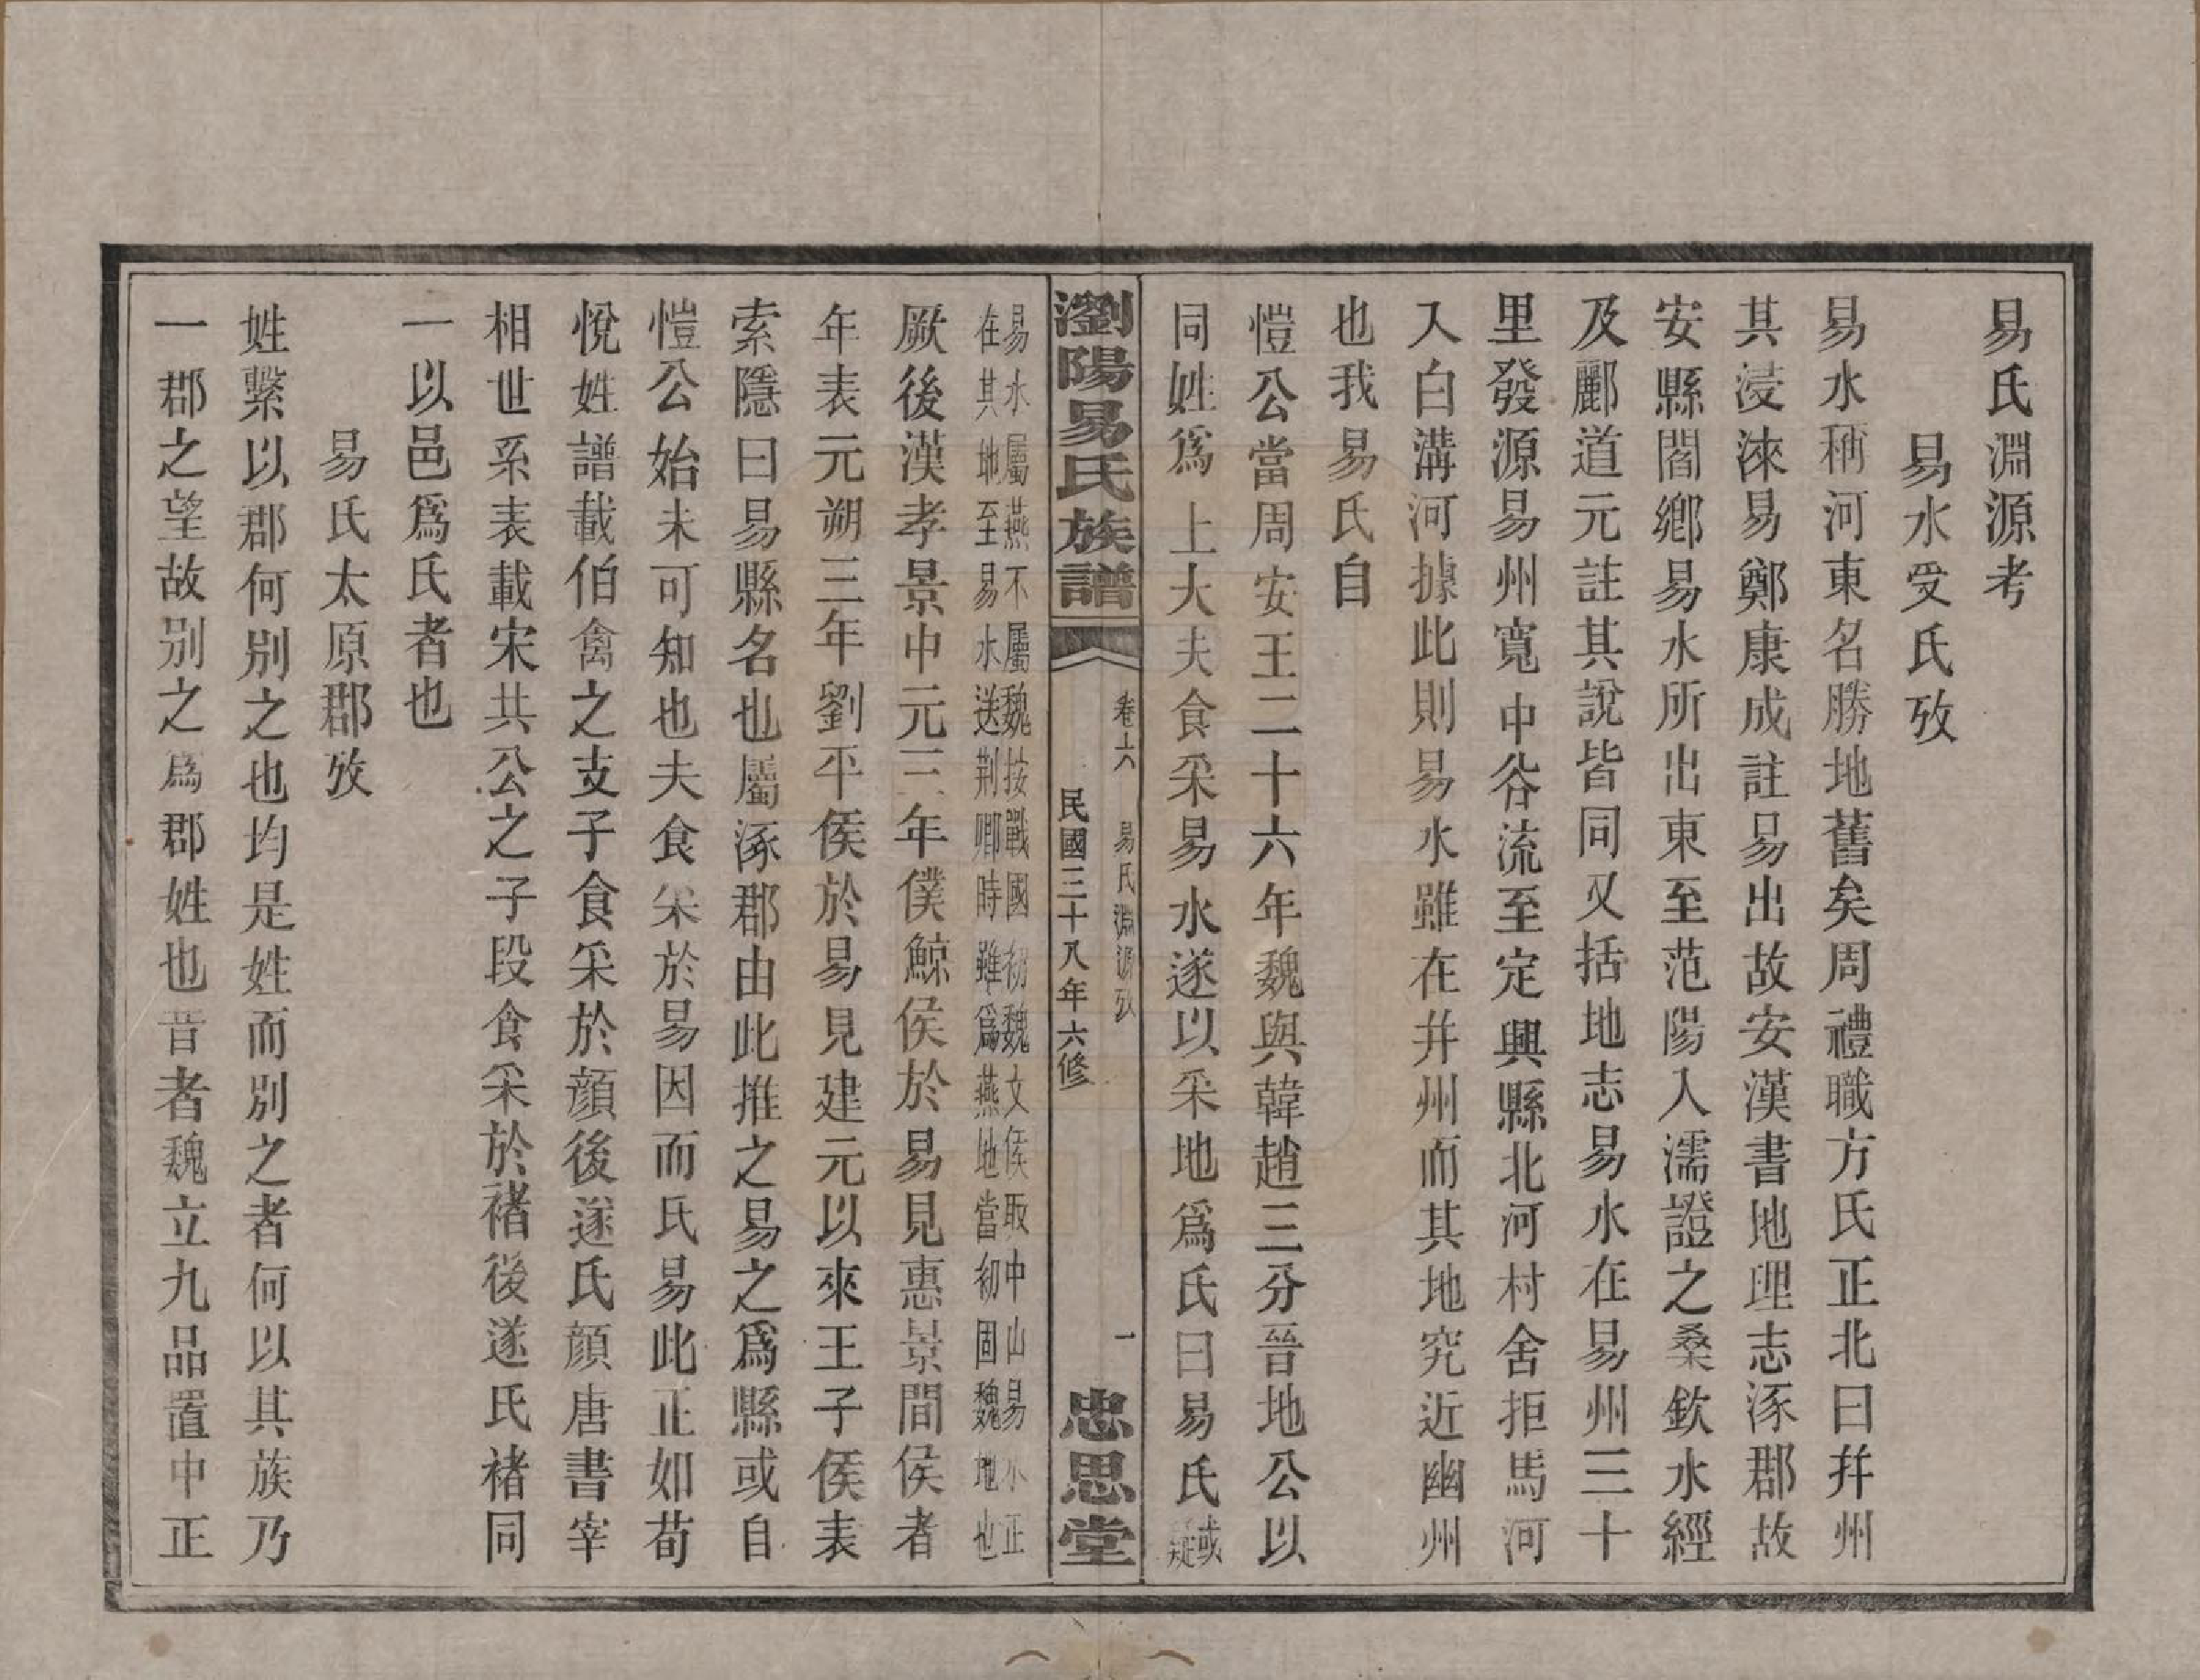 易氏淵源考
易水受氏攷
易水稱河東名勝地舊矣周禮職方氏正北曰幷州
其浸淶易鄭康成註易出故安漢書地理志涿郡故
安縣閻鄉易水所出東至范陽入濡證之桑欽水經
及酈道元註其說皆同又括地志易水在易州三十
里發源易州寬中谷流至定興縣北河村舍拒馬河
入白溝河據此則易水雖在幷州而其地究近幽州
也我易氏自
愷公當周安王二十六年魏與韓趙三分晉地公以
同姓爲上大夫食采易水遂以采地爲氏曰易氏或疑
瀏陽易氏族譜
卷六 易氏淵源攷 一
民國三十八年六修
忠思堂
易水屬燕不屬魏按戰國初魏文侯取中山易水正
在其地至易水送荆卿時雖爲燕地當初固魏地也
厥後漢孝景中元三年僕䱒侯於易見惠景間侯者
年表元朔三年劉平侯於易見建元以來王子侯表
索隱曰易縣名也屬涿郡由此推之易之爲縣或自
愷公始未可知也夫食采於易因而氏易此正如荀
悅姓譜載伯禽之支子食采於顔後遂氏顔唐書宰
相世系表載宋共公之子段食采於褚後遂氏褚同
一以邑爲氏者也
易氏太原郡攷
姓繫以郡何別之也均是姓而別之者何以其族乃
一郡之望故別之爲郡姓也昔者魏立九品置中正